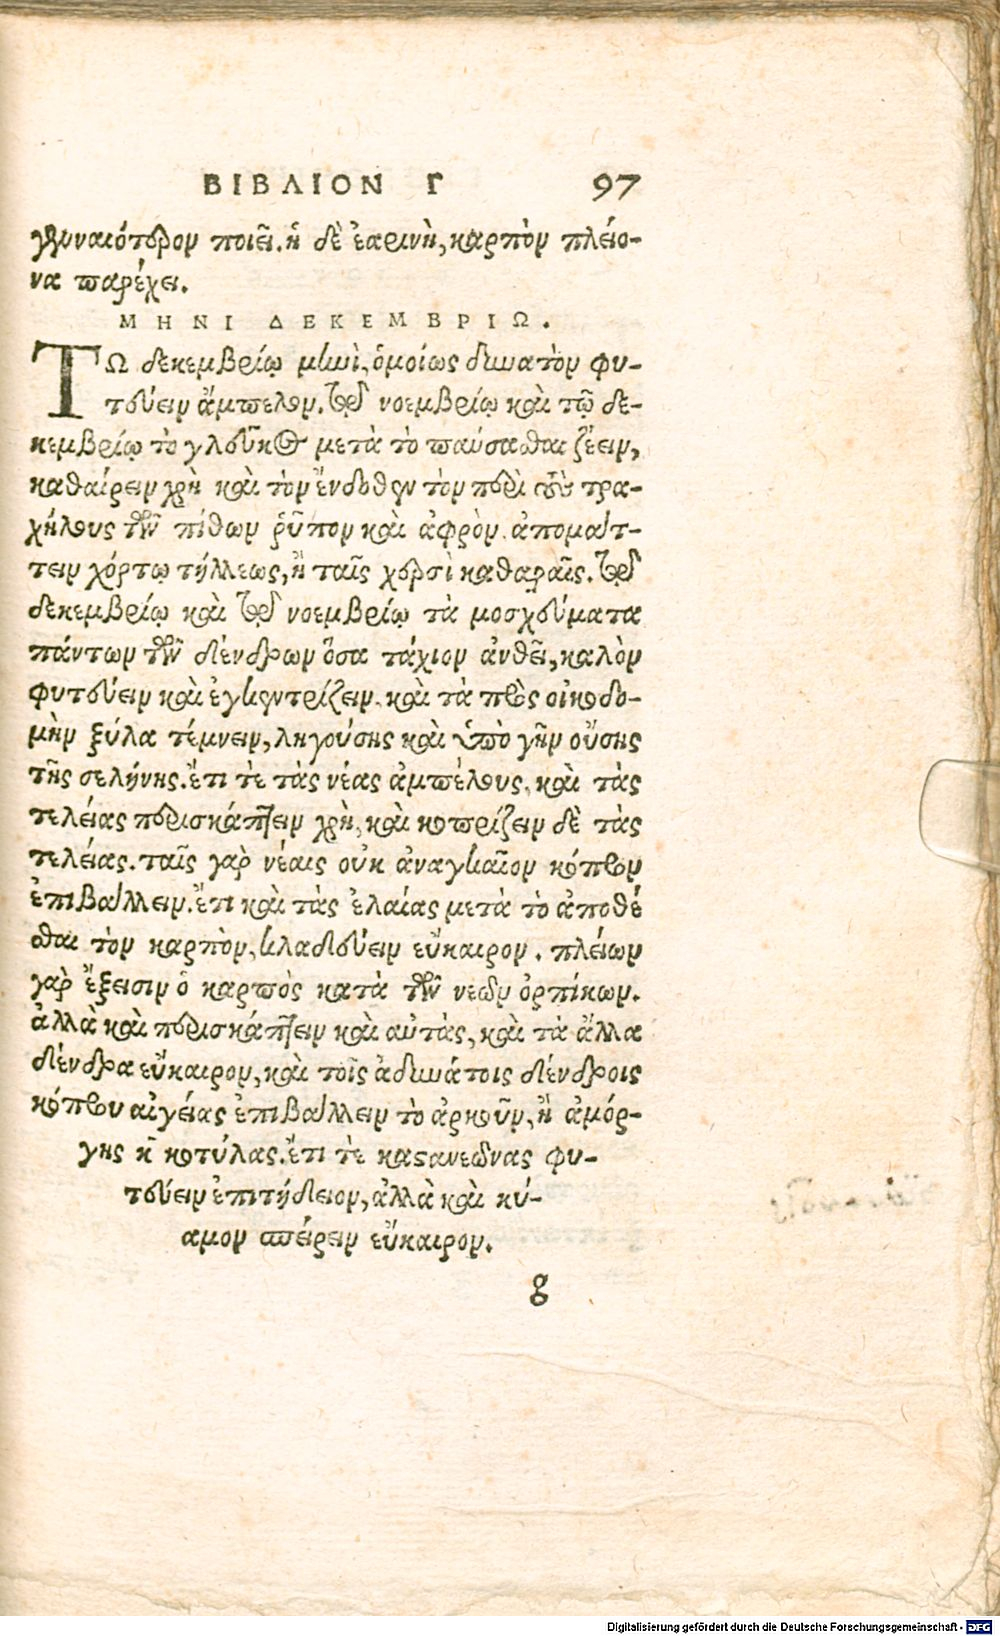 ΒΙΒΛΙΟΝ Γ 97
γενναιότερον ποιεῖ. ἡ δὲ ἐαρινὴ, καρπὸν πλείο-
να παρέχει.
ΜΗΝΙ ΔΕΚΕΜΒΡΙΩ.
ΤΩ δεκεμβρίῳ μηνὶ, ὁμοίως δυνατὸν φυ-
τεύειν ἄμπελον. τῷ δὲ νοεμβρίῳ καὶ τῷ δε-
κεμβρίῳ τὸ γλεῦκος μετὰ τὸ παύσασθαι ζέειν,
καθαίρειν χρὴ καὶ τὸν ἔνδοθεν τὸν περὶ τοὺς τρα-
χήλους τῶν πίθων ῥύπον καὶ ἀφρὸν ἀπομάτ-
τειν χόρτῳ τήλλεως, ἢ ταῖς χερσὶ καθαραῖς. τῷ δὲ
δεκεμβρίῳ καὶ τῷ δὲ νοεμβρίῳ τὰ μοσχεύματα
πάντων τῶν δένδρων ὅσα τάχιον ἀνθεῖ, καλὸν
φυτεύειν καὶ ἐγκεντρίζειν. καὶ τὰ πρὸς οἰκοδο-
μὴν ξύλα τέμνειν, ληγούσης καὶ ὑπὸ γῆν οὔσης
τῆς σελήνης. ἔτι τὲ τὰς νέας ἀμπέλους, καὶ τὰς
τελείας περισκάπτειν χρὴ, καὶ κοπρίζειν δὲ τὰς
τελείας. ταῖς γὰρ νέαις οὐκ ἀναγκαῖον κόπρον
ἐπιβάλλειν. ἔτι καὶ τὰς ἐλαίας μετὰ τὸ ἀποθέ
σθαι τὸν καρπὸν, κλαδεύειν εὔκαιρον. πλείων
γὰρ ἔξεισιν ὁ καρπὸς κατὰ τῶν νέων ὀρπίκων.
ἀλλὰ καὶ περισκάπτειν καὶ αὐτὰς, καὶ τὰ ἄλλα
δένδρα εὔκαιρον, καὶ τοῖς ἀδυνάτοις δένδροις
κόπρου αἰγείας ἐπιβάλλειν τὸ ἀρκοῦν, ἢ ἀμόρ-
γης κ̄ κοτύλας. ἔτι τὲ καστανεῶνας φυ-
τεύειν ἐπιτήδειον, ἀλλὰ καὶ κύ-
αμον σπείρειν εὔκαιρον.
g
Digitalisierung gefördert durch die Deutsche Forschungsgemeinschaft - DFG